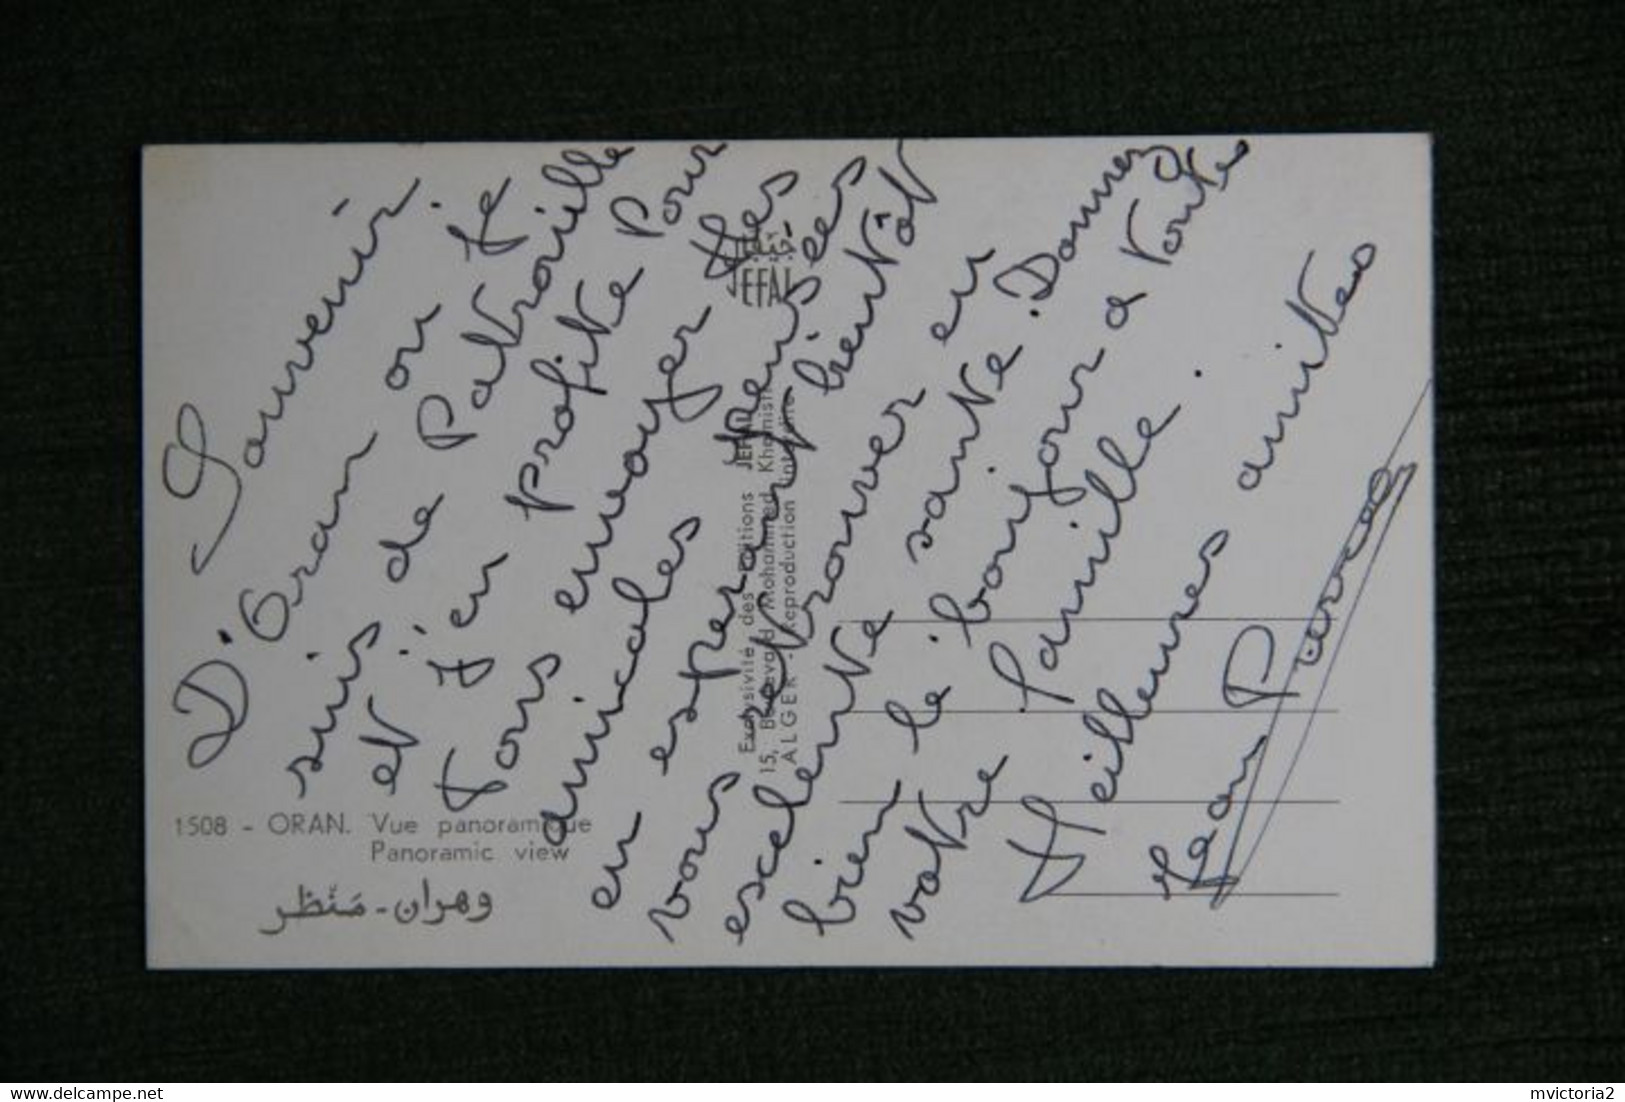 Souvenir.
D'Oran ou je
suis de Patrouille
et j'en profite Pour
Vous envoyer Mes
amicales Pensées
en esperant bientôt
vous retrouver en
excelente santé. Donnez
bien le bonjour a toute
votre famille.
Meilleures amities
Jean
1508 - ORAN. Vue panoramique
Panoramic view
وهران - منظر
JEFAL
Exclusivité des éditions JEFAL
15, Boulevard Mohammed Khemisti
ALGER - Reproduction interdite
Delcampe.net
mvictoria2